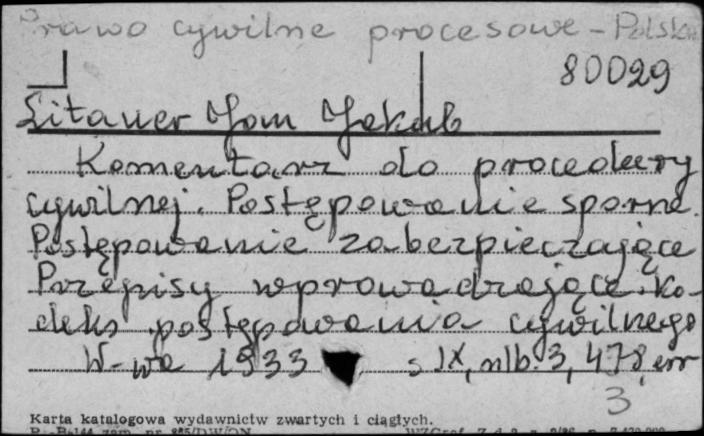 Prawo cywilne procesowe - Polska
80029
Litauer Jan Jakub
Komentarz do procedury
cywilnej. Postępowanie sporne.
Postępowanie zabezpieczające
Przepisy wprowadzające ko-
deks postępowania cywilnego
W-wa 1933 s IX, nlb. 3, 478, err
3
Karta katalogowa wydawnictw zwartych i ciągłych.